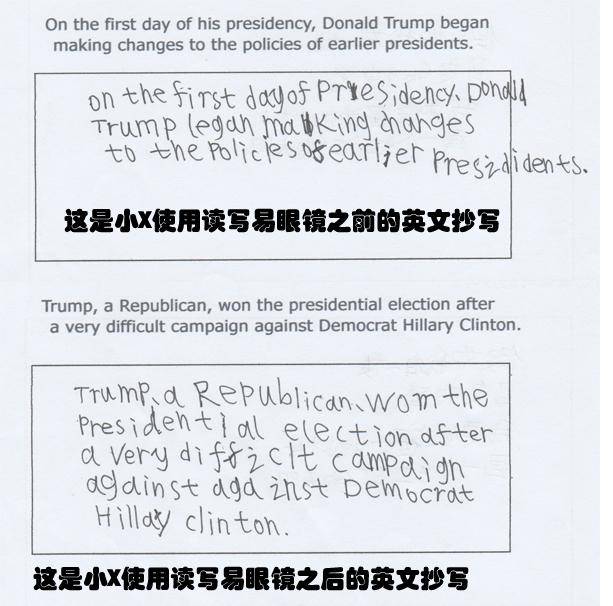 On the first day of his presidency, Donald Trump began
making changes to the policies of earlier presidents.
on the first day of Prresidency, Donald
Trump legan making changes
to the Policies of earlier Presididents.
这是小X使用读写易眼镜之前的英文抄写
Trump, a Republican, won the presidential election after
a very difficult campaign against Democrat Hillary Clinton.
Trump, a Republican, wom the
Presidential election after
a very difficlt campaign
against against Democrat
Hillay clinton.
这是小X使用读写易眼镜之后的英文抄写